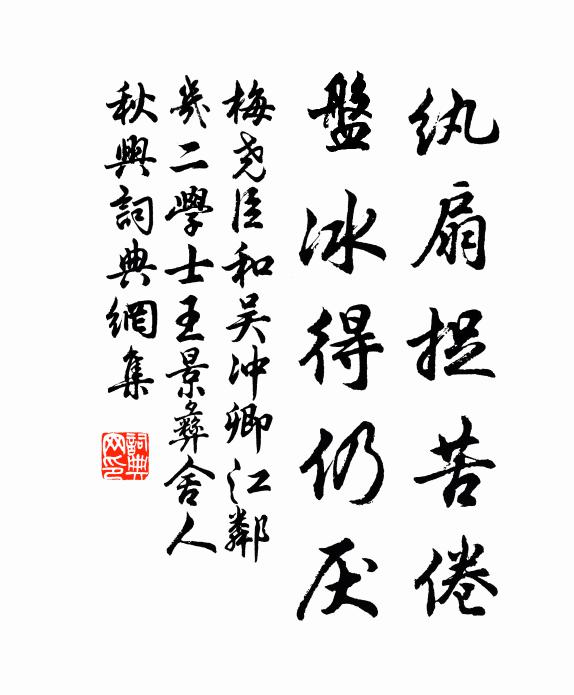 纨扇捉苦倦
盤冰得仍厌
梅尧臣和吴冲卿江鄰
幾二學士王景彝舍人
秋興詞典網集
詞典网印